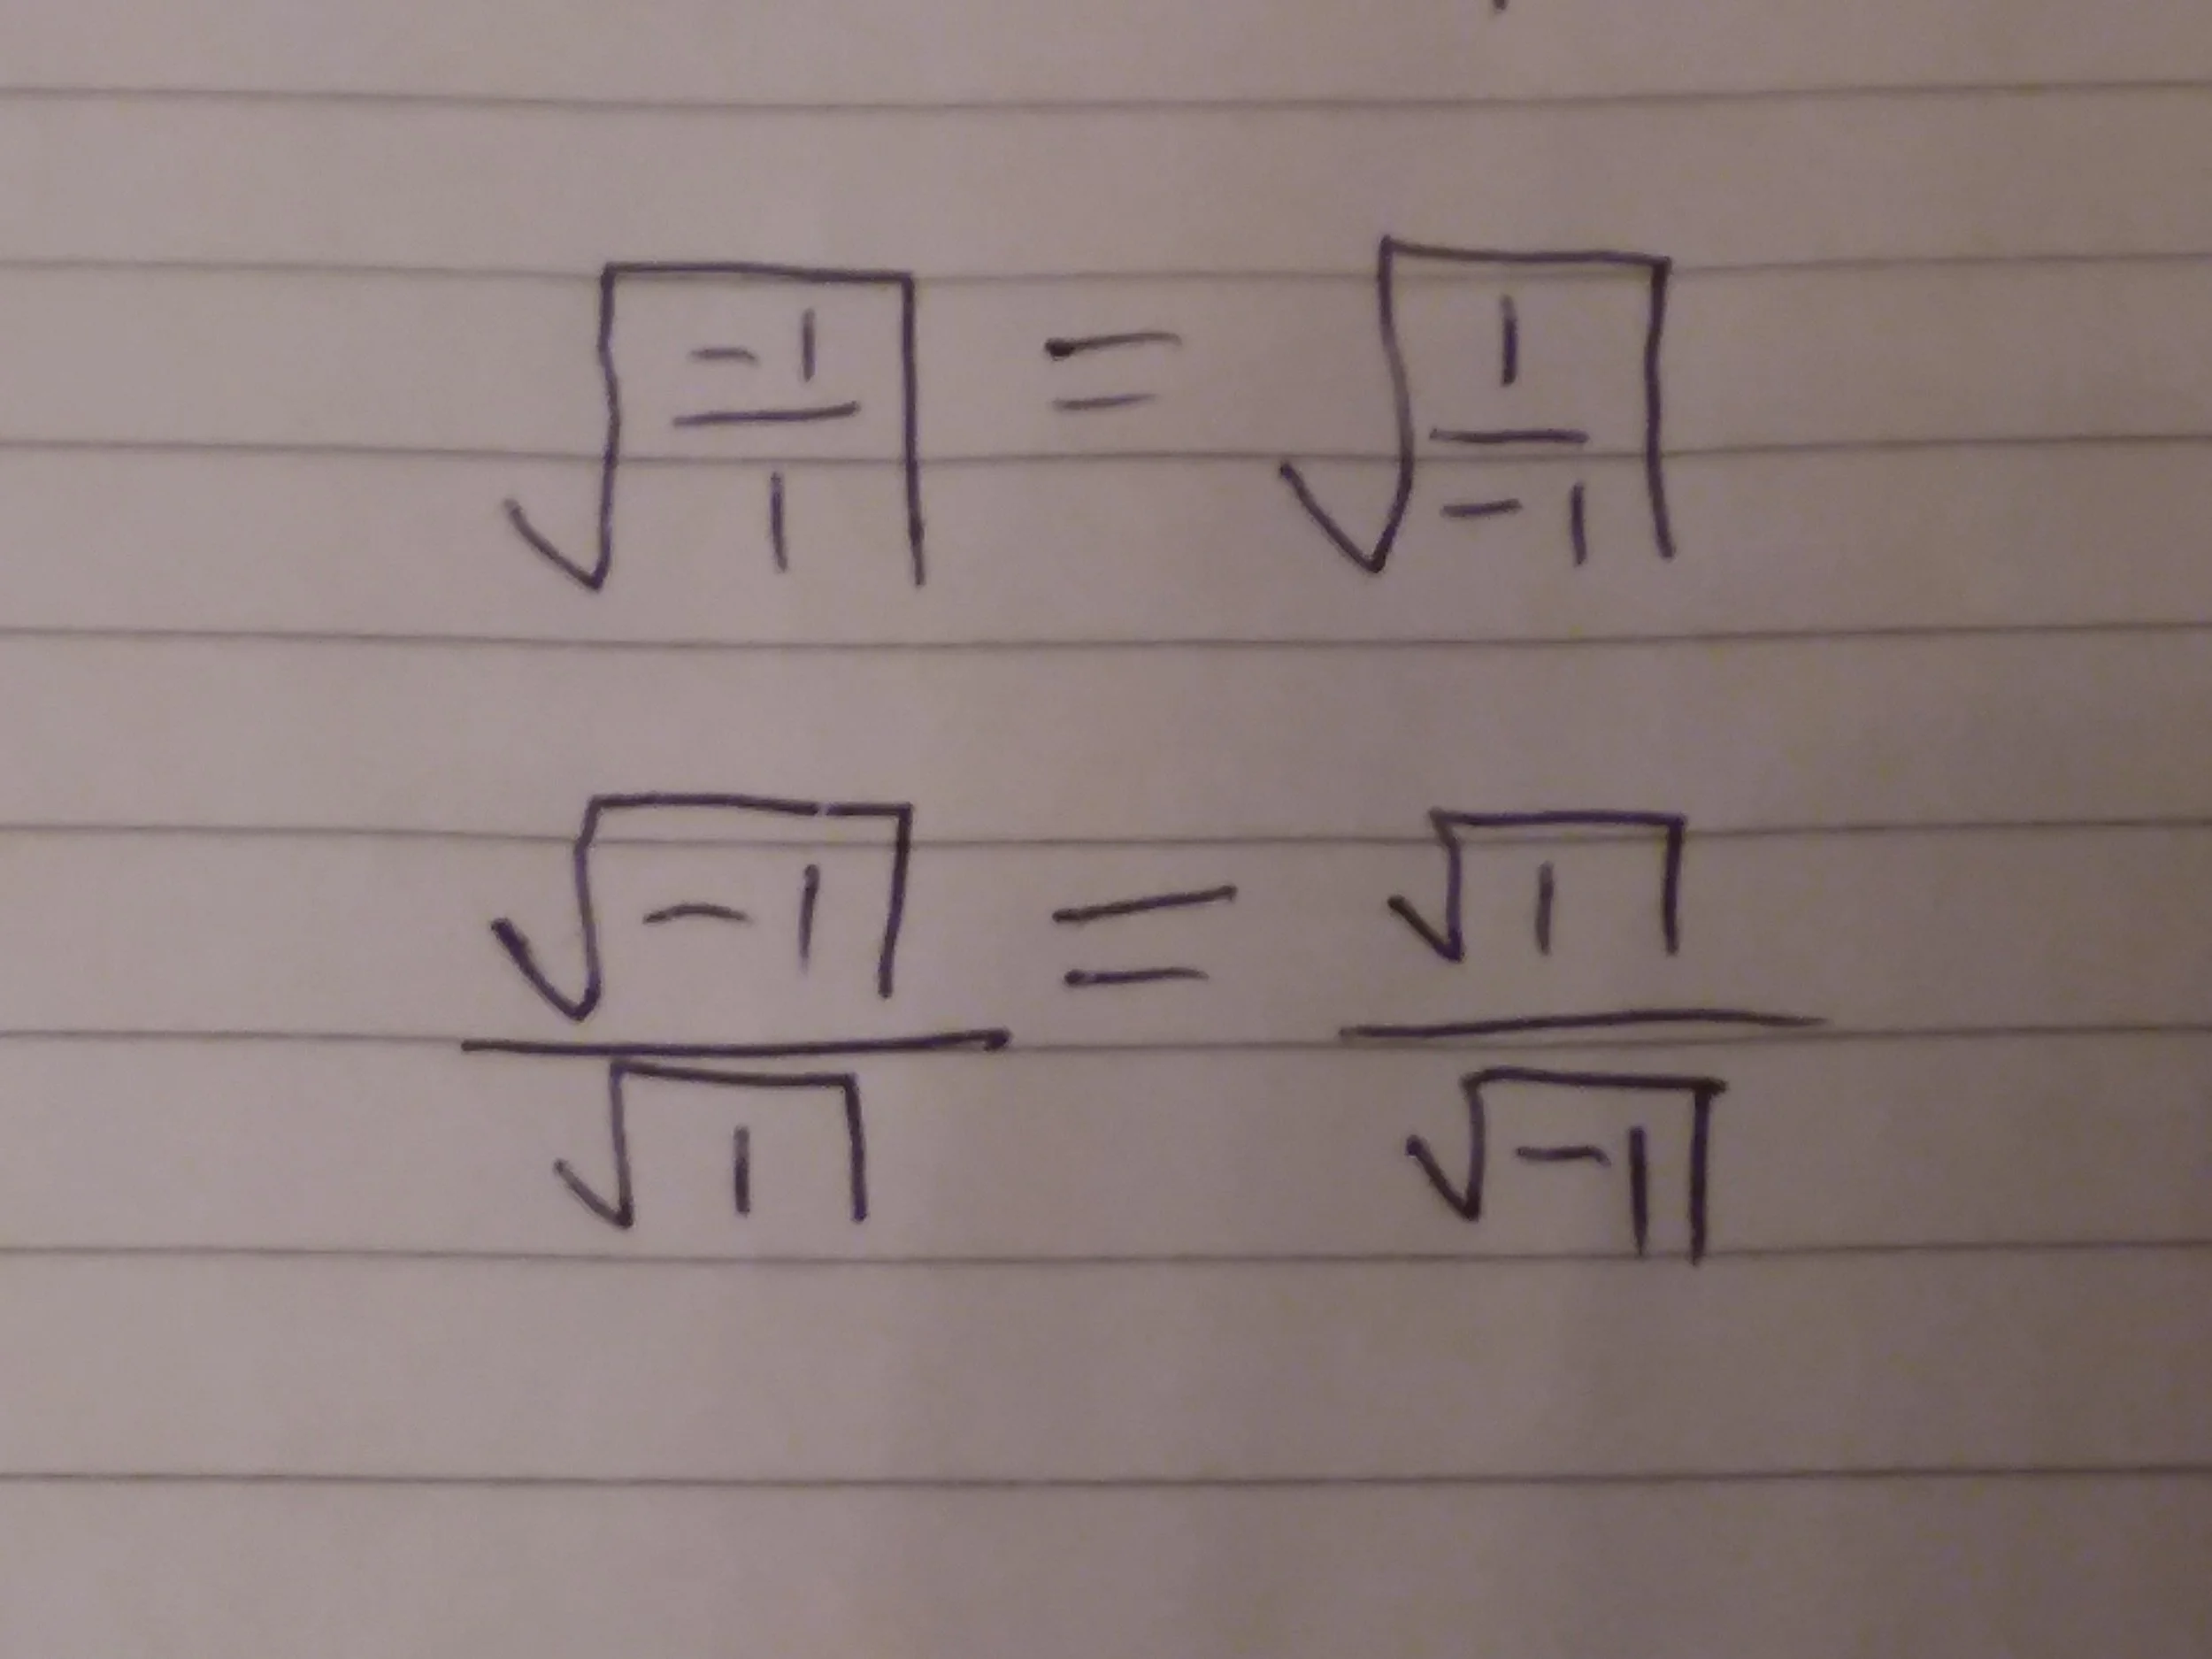 √(-1/1) = √(1/-1)
√-1/√1 = √1/√-1